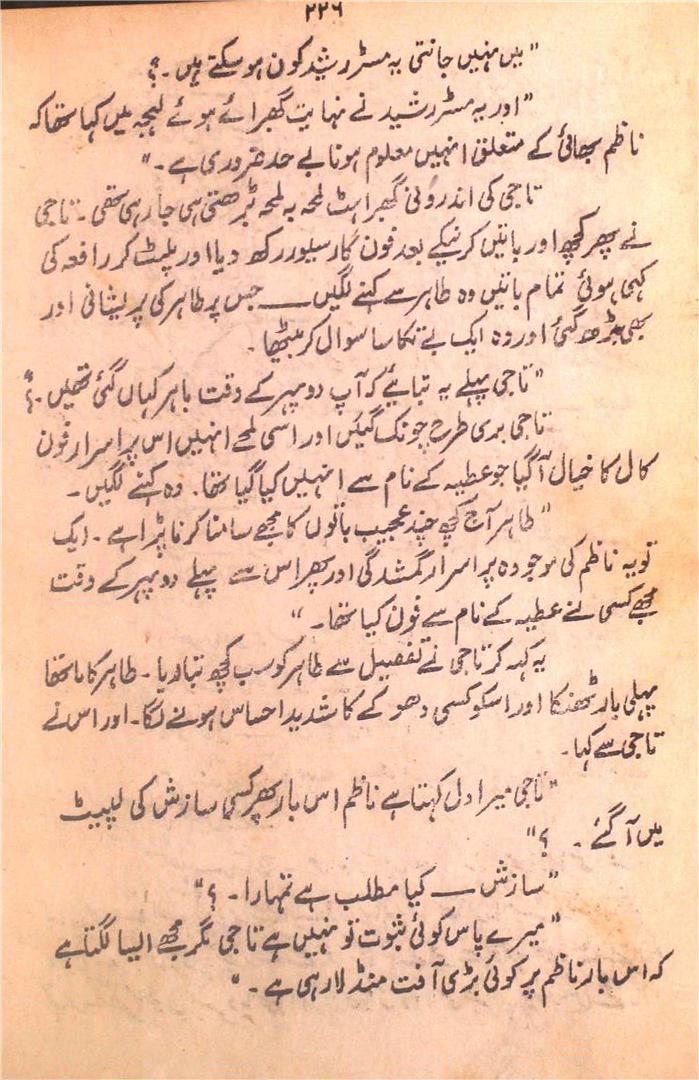 ۲۲۶
"میں نہیں جانتی یہ مسٹر رشید کون ہو سکتے ہیں۔؟
"اور یہ مسٹر رشید نے نہایت گھبرائے ہوئے لہجہ میں کہا تھا کہ
ناظم بھائی کے متعلق انہیں معلوم ہونا بے حد ضروری ہے۔"
تاجی کی اندرونی گھبراہٹ لمحہ بہ لمحہ بڑھتی ہی جا رہی تھی۔ تاجی
نے پھر کچھ اور باتیں کرنیکے بعد فون کا رسیور رکھ دیا اور پلٹ کر رافعہ کی
کہی ہوئی تمام باتیں وہ طاہر سے کہنے لگیں ــــ جس پر طاہر کی پریشانی اور
بھی بڑھ گئی اور وہ ایک بے تکا سا سوال کر بیٹھا۔
"تاجی پہلے یہ بتائیے کہ آپ دوپہر کے وقت باہر کہاں گئی تھیں۔؟"
تاجی بری طرح چونک گئیں اور اسی لمحے انہیں اس پر اسرار فون
کال کا خیال آگیا جو عطیہ کے نام سے انہیں کیا گیا تھا۔ وہ کہنے لگیں۔
"طاہر آج کچھ چند عجیب باتوں کا مجھے سامنا کرنا پڑا ہے۔ ایک
تو یہ ناظم کی موجودہ پراسرار گمشدگی اور پھر اس سے پہلے دوپہر کے وقت
مجھے کسی نے عطیہ کے نام سے فون کیا تھا۔"
یہ کہہ کر تاجی نے تفصیل سے طاہر کو سب کچھ بتا دیا۔ طاہر کا ماتھا
پہلی بار ٹھنکا اور اسکو کسی دھوکے کا شدید احساس ہونے لگا۔ اور اس نے
تاجی سے کہا۔
"تاجی میرا دل کہتا ہے ناظم اس بار پھر کسی سازش کی لپیٹ
میں آگئے۔ ؟"
"سازش ــــ کیا مطلب ہے تمہارا۔ ؟"
"میرے پاس کوئی ثبوت تو نہیں ہے تاجی مگر مجھے ایسا لگتا ہے
کہ اس بار ناظم پر کوئی بڑی آفت منڈلا رہی ہے۔"